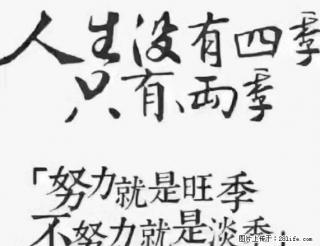 人生没有四季
只有两季
「努力就是旺季
不努力就是淡季」
图片上传于：281life.com